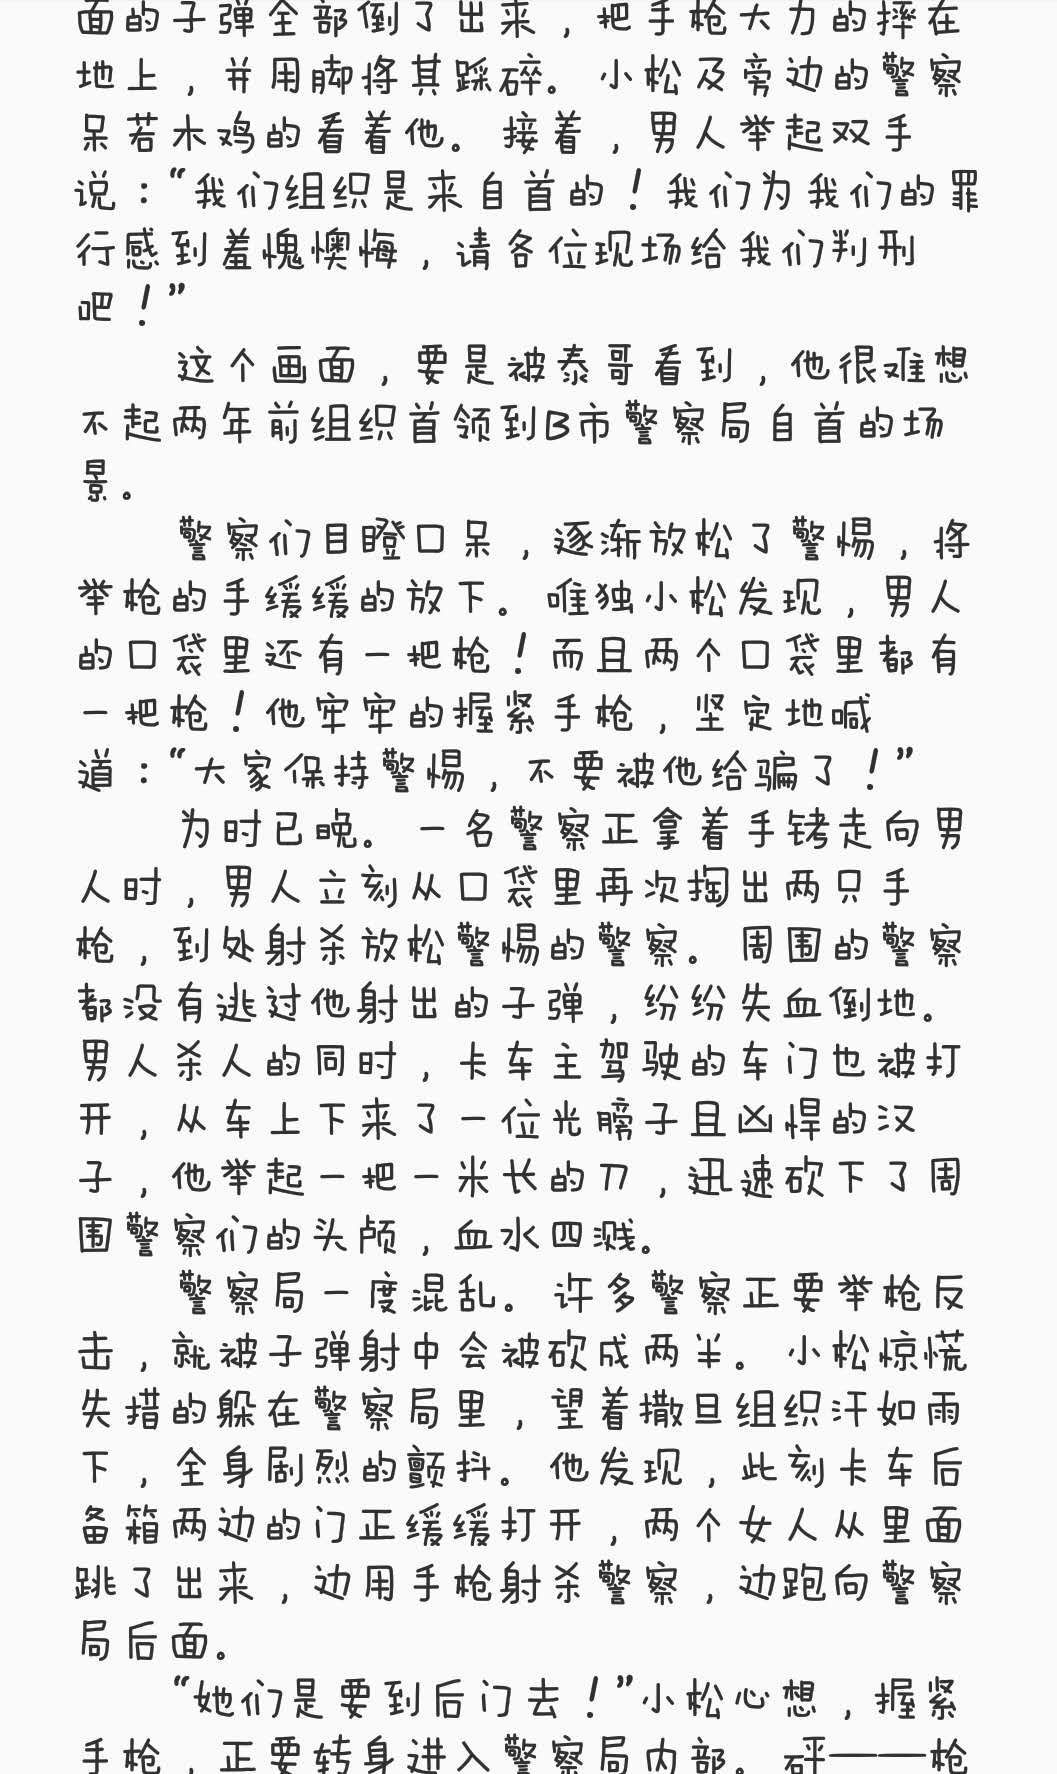 面的子弹全部倒了出来，把手枪大力的摔在
地上，并用脚将其踩碎。小松及旁边的警察
呆若木鸡的看着他。接着，男人举起双手
说：“我们组织是来自首的！我们为我们的罪
行感到羞愧懊悔，请各位现场给我们判刑
吧！”
这个画面，要是被泰哥看到，他很难想
不起两年前组织首领到B市警察局自首的场
景。
警察们目瞪口呆，逐渐放松了警惕，将
举枪的手缓缓的放下。唯独小松发现，男人
的口袋里还有一把枪！而且两个口袋里都有
一把枪！他牢牢的握紧手枪，坚定地喊
道：“大家保持警惕，不要被他给骗了！”
为时已晚。一名警察正拿着手铐走向男
人时，男人立刻从口袋里再次掏出两只手
枪，到处射杀放松警惕的警察。周围的警察
都没有逃过他射出的子弹，纷纷失血倒地。
男人杀人的同时，卡车主驾驶的车门也被打
开，从车上下来了一位光膀子且凶悍的汉
子，他举起一把一米长的刀，迅速砍下了周
围警察们的头颅，血水四溅。
警察局一度混乱。许多警察正要举枪反
击，就被子弹射中会被砍成两半。小松惊慌
失措的躲在警察局里，望着撒旦组织汗如雨
下，全身剧烈的颤抖。他发现，此刻卡车后
备箱两边的门正缓缓打开，两个女人从里面
跳了出来，边用手枪射杀警察，边跑向警察
局后面。
“她们是要到后门去！”小松心想，握紧
手枪，正要转身进入警察局内部。砰——枪